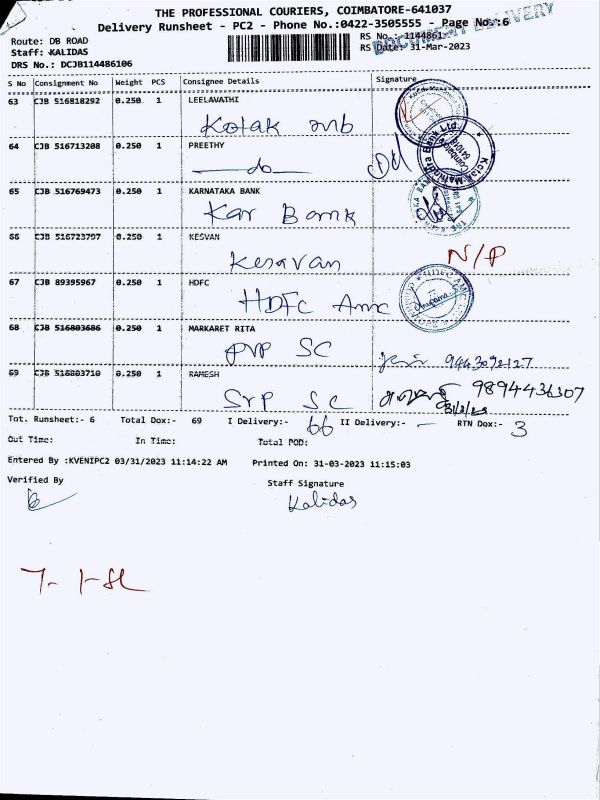 THE PROFESSIONAL COURIERS, COIMBATORE-641037
Delivery Runsheet - PC2 - Phone No.:0422-3505555 - Page No.:6
DOCUMENT DELIVERY
Route: DB ROAD
RS No.: 1144861
Staff: KALIDAS
RS Date: 31-Mar-2023
DRS No.: DCJB114486106
S No Consignment No Weight PCS Consignee Details Signature
63 CJB 516818292 0.250 1 LEELAVATHI
Kotak mb
64 CJB 516713208 0.250 1 PREETHY
do
Kotak Mahindra Bank Ltd.
Coimbatore
65 CJB 516769473 0.250 1 KARNATAKA BANK
Kar Bank
66 CJB 516723797 0.250 1 KESVAN
Kesavan N/P
67 CJB 89395967 0.250 1 HDFC
HDFC Amc
68 CJB 516803686 0.250 1 MARKARET RITA
PVP SC 9443092127
69 CJB 516803710 0.250 1 RAMESH
SrP SC 9894436307
Tot. Runsheet:- 6 Total Dox:- 69 I Delivery:- 66 II Delivery:- - RTN Dox:- 3
Out Time: In Time: Total POD:
Entered By :KVENIPC2 03/31/2023 11:14:22 AM Printed On: 31-03-2023 11:15:03
Verified By Staff Signature
Kalidas